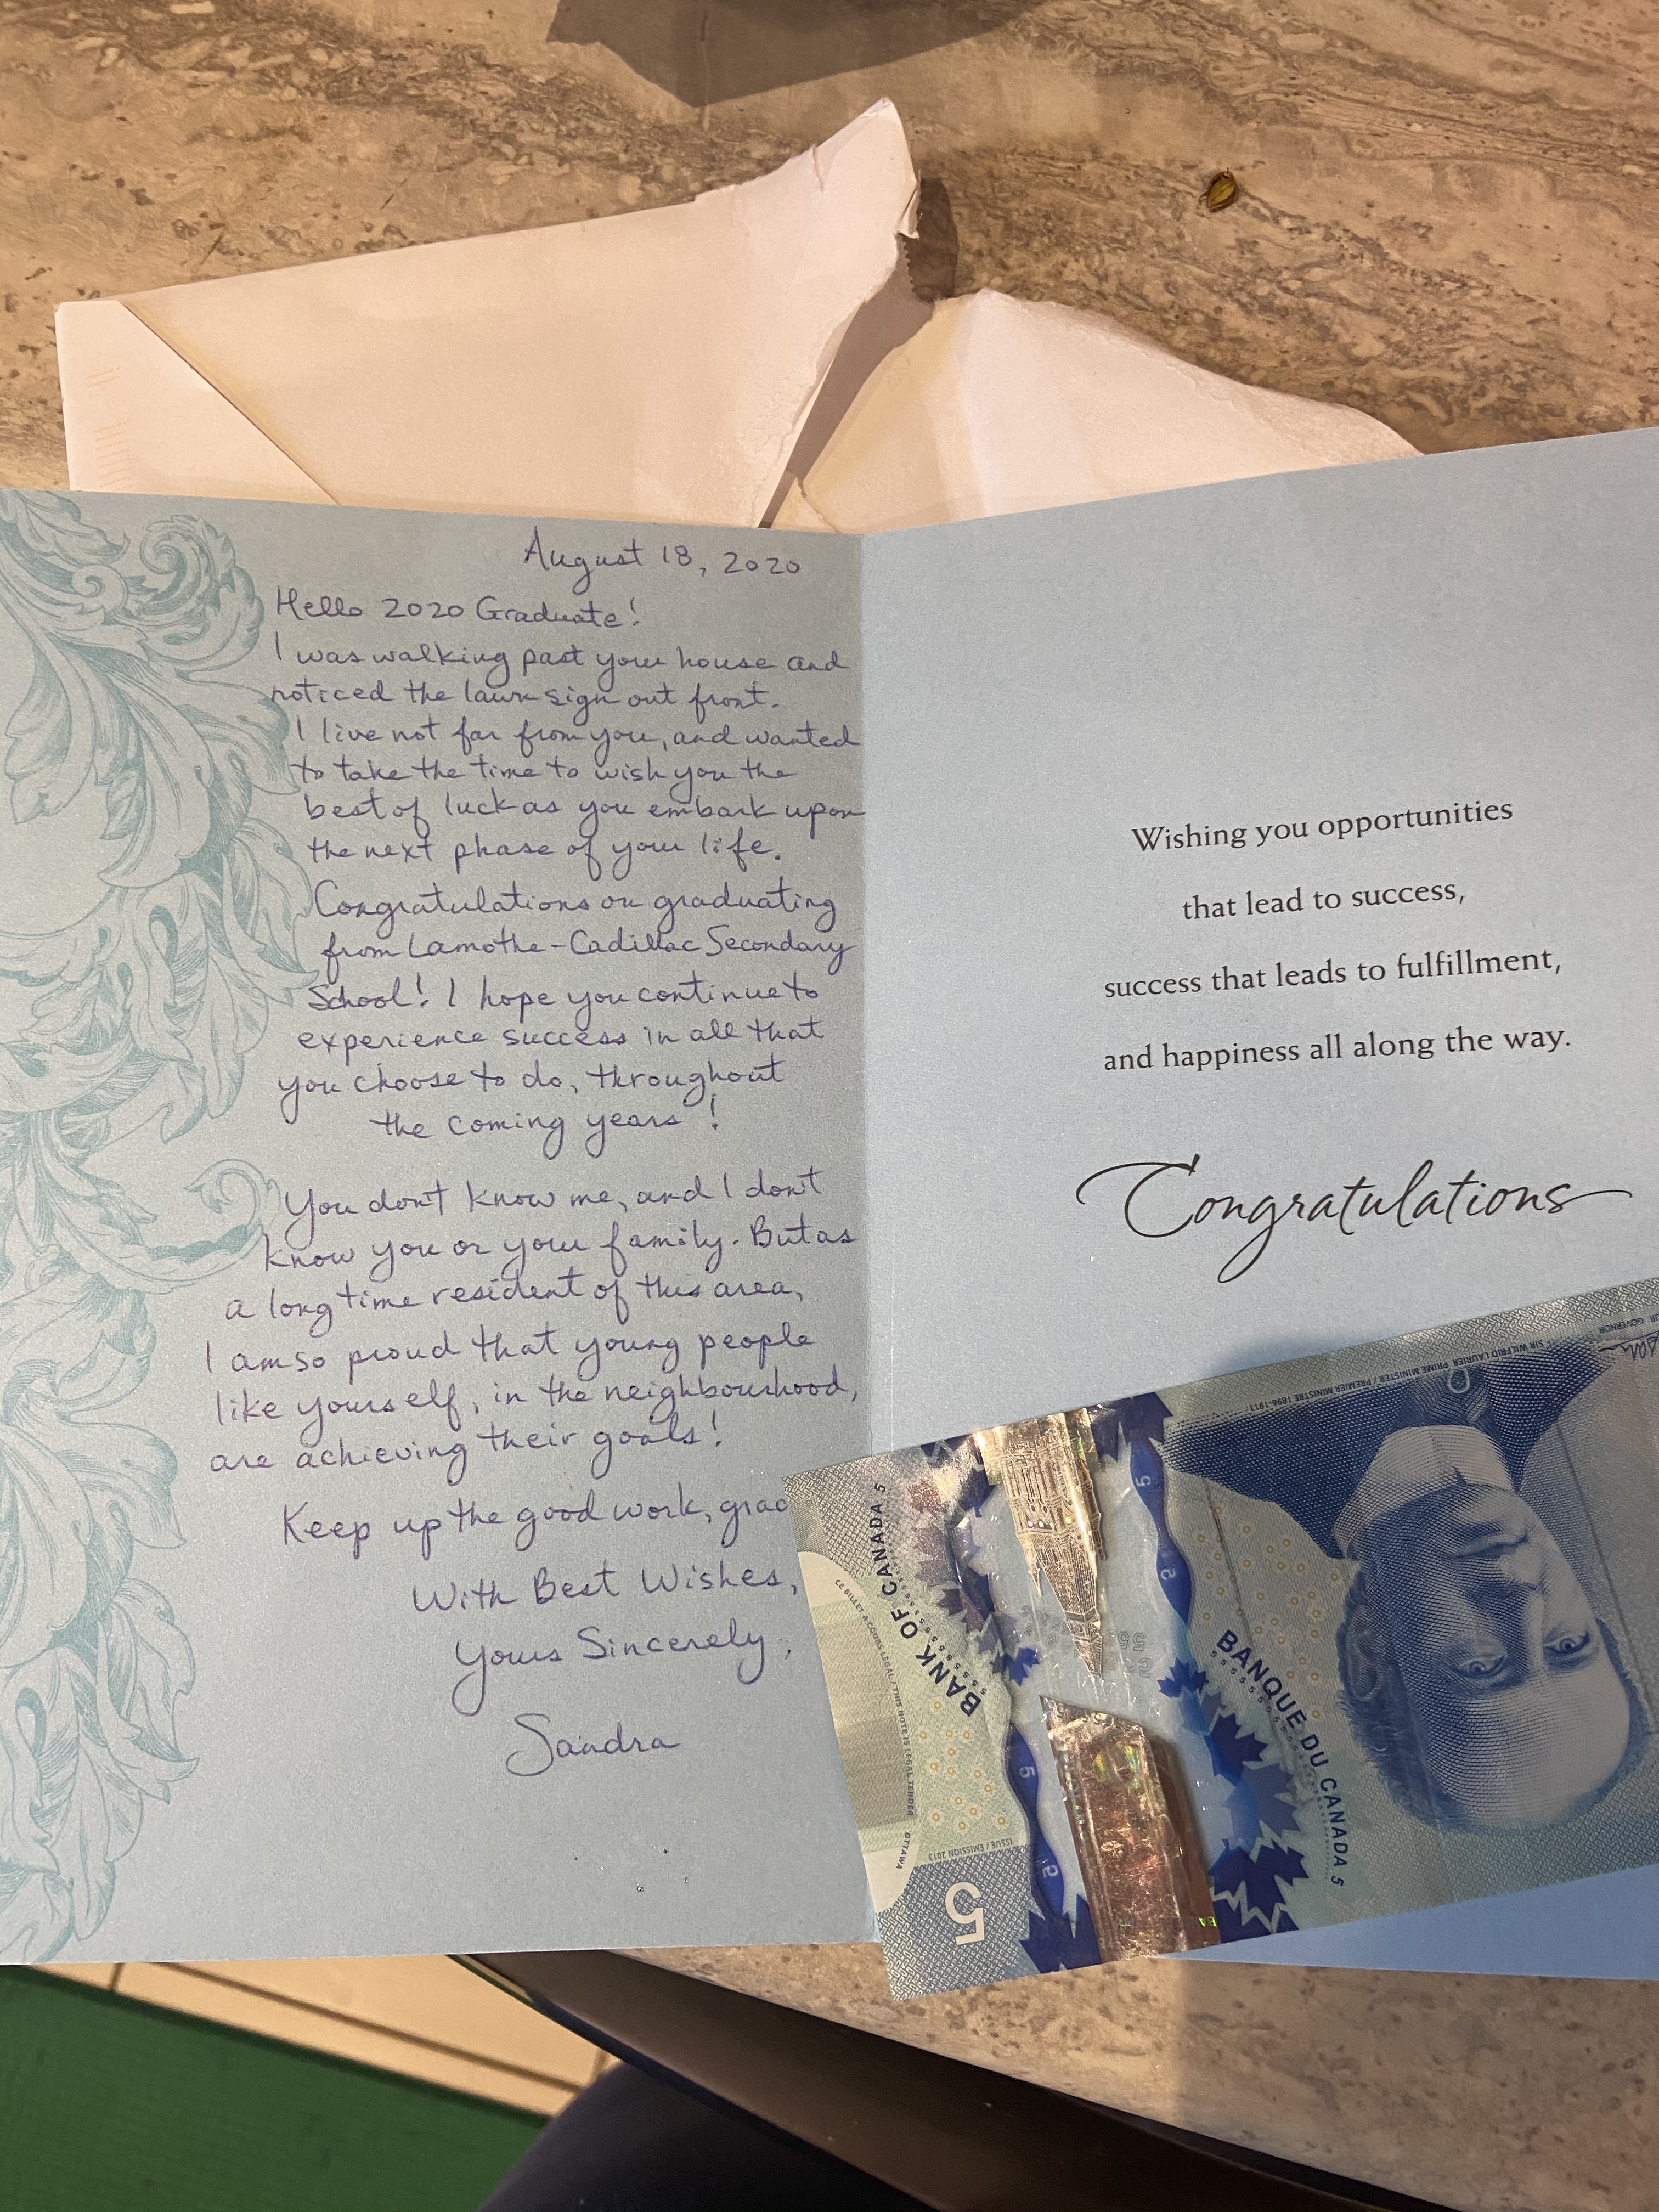 August 18, 2020
Hello 2020 Graduate!
I was walking past your house and
noticed the lawn sign out front.
I live not far from you, and wanted
to take the time to wish you the
best of luck as you embark upon
the next phase of your life.
Congratulations on graduating
from Lamothe-Cadillac Secondary
School! I hope you continue to
experience success in all that
you choose to do, throughout
the coming years!
You don't know me, and I don't
know you or your family. But as
a long time resident of this area,
I am so proud that young people
like yourself, in the neighbourhood,
are achieving their goals!
Keep up the good work, grad
With Best Wishes,
Yours Sincerely,
Sandra
Wishing you opportunities
that lead to success,
success that leads to fulfillment,
and happiness all along the way.
Congratulations
SIR WILFRID LAURIER PRIME MINISTER / PREMIER MINISTRE 1896-1911
GOVERNOR
BANK OF CANADA 5
CE BILLET A COURS LEGAL / THIS NOTE IS LEGAL TENDER OTTAWA
ISSUE / EMISSION 2013
BANQUE DU CANADA 5
5
5
2
5
5